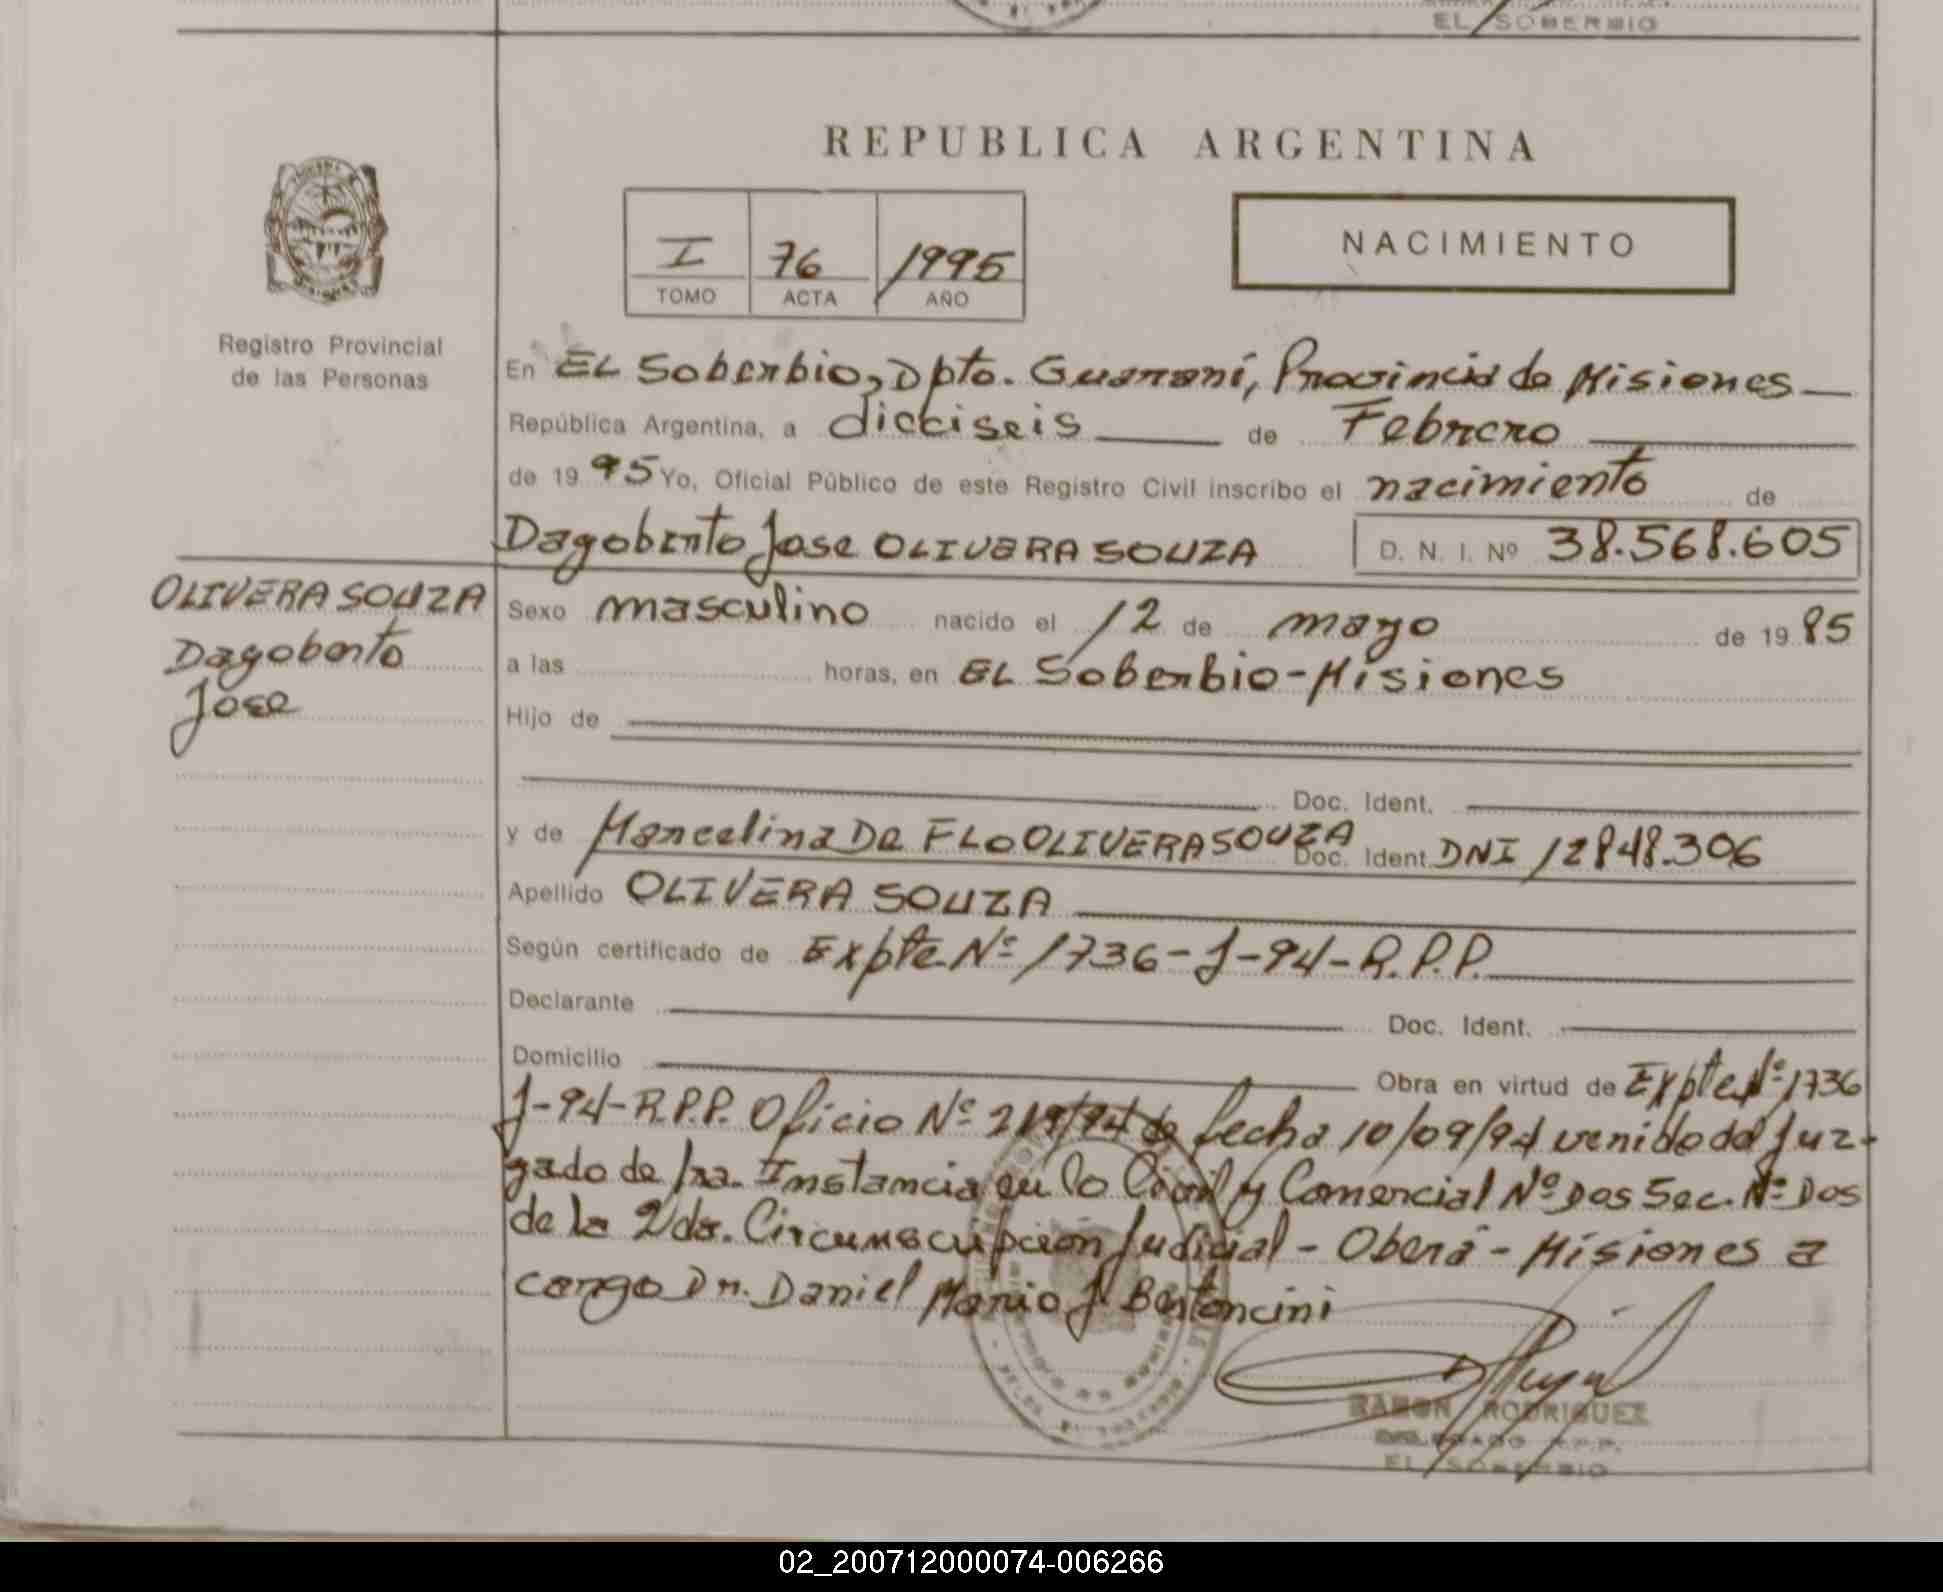 EL SOBERBIO
REPUBLICA ARGENTINA
I 76 1995
TOMO ACTA AÑO
NACIMIENTO
Registro Provincial
de las Personas
En EL Soberbio, Dpto. Guaraní, Provincia de Misiones
República Argentina, a dieciseis de Febrero
de 19 95 Yo, Oficial Público de este Registro Civil inscribo el nacimiento de
Dagoberto Jose OLIVERA SOUZA D. N. I. Nº 38.568.605
OLIVERA SOUZA
Dagoberto
Jose
Sexo masculino nacido el 12 de mayo de 19 85
a las horas, en EL Soberbio-Misiones
Hijo de
Doc. Ident.
y de Marcelina De FLO OLIVERA SOUZA Doc. Ident. DNI 12848.306
Apellido OLIVERA SOUZA
Según certificado de Expte Nº 1736-J-94-R.P.P.
Declarante Doc. Ident.
Domicilio Obra en virtud de Expte Nº 1736
J-94-R.P.P. Oficio Nº 219/94 de fecha 10/09/94 venido del Juz-
gado de 1ra. Instancia en lo Civil y Comercial Nº Dos Sec. Nº Dos
de la 2da. Circunscripción Judicial - Oberá - Misiones a
cargo Dr. Daniel Mario J. Bertoncini
RAMON RODRIGUEZ
DELEGADO R.P.P.
EL SOBERBIO
02_200712000074-006266